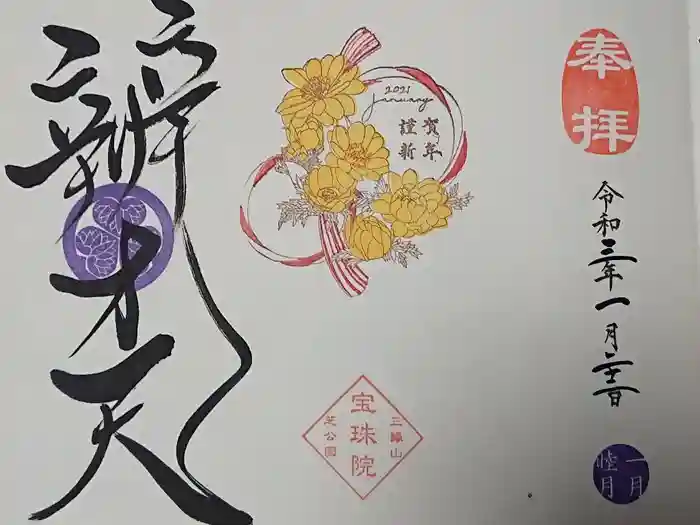 奉拝
令和三年一月二十二日
一月
睦月
2021
January
賀年
謹新
三縁山
宝珠院
芝公園
辨才天